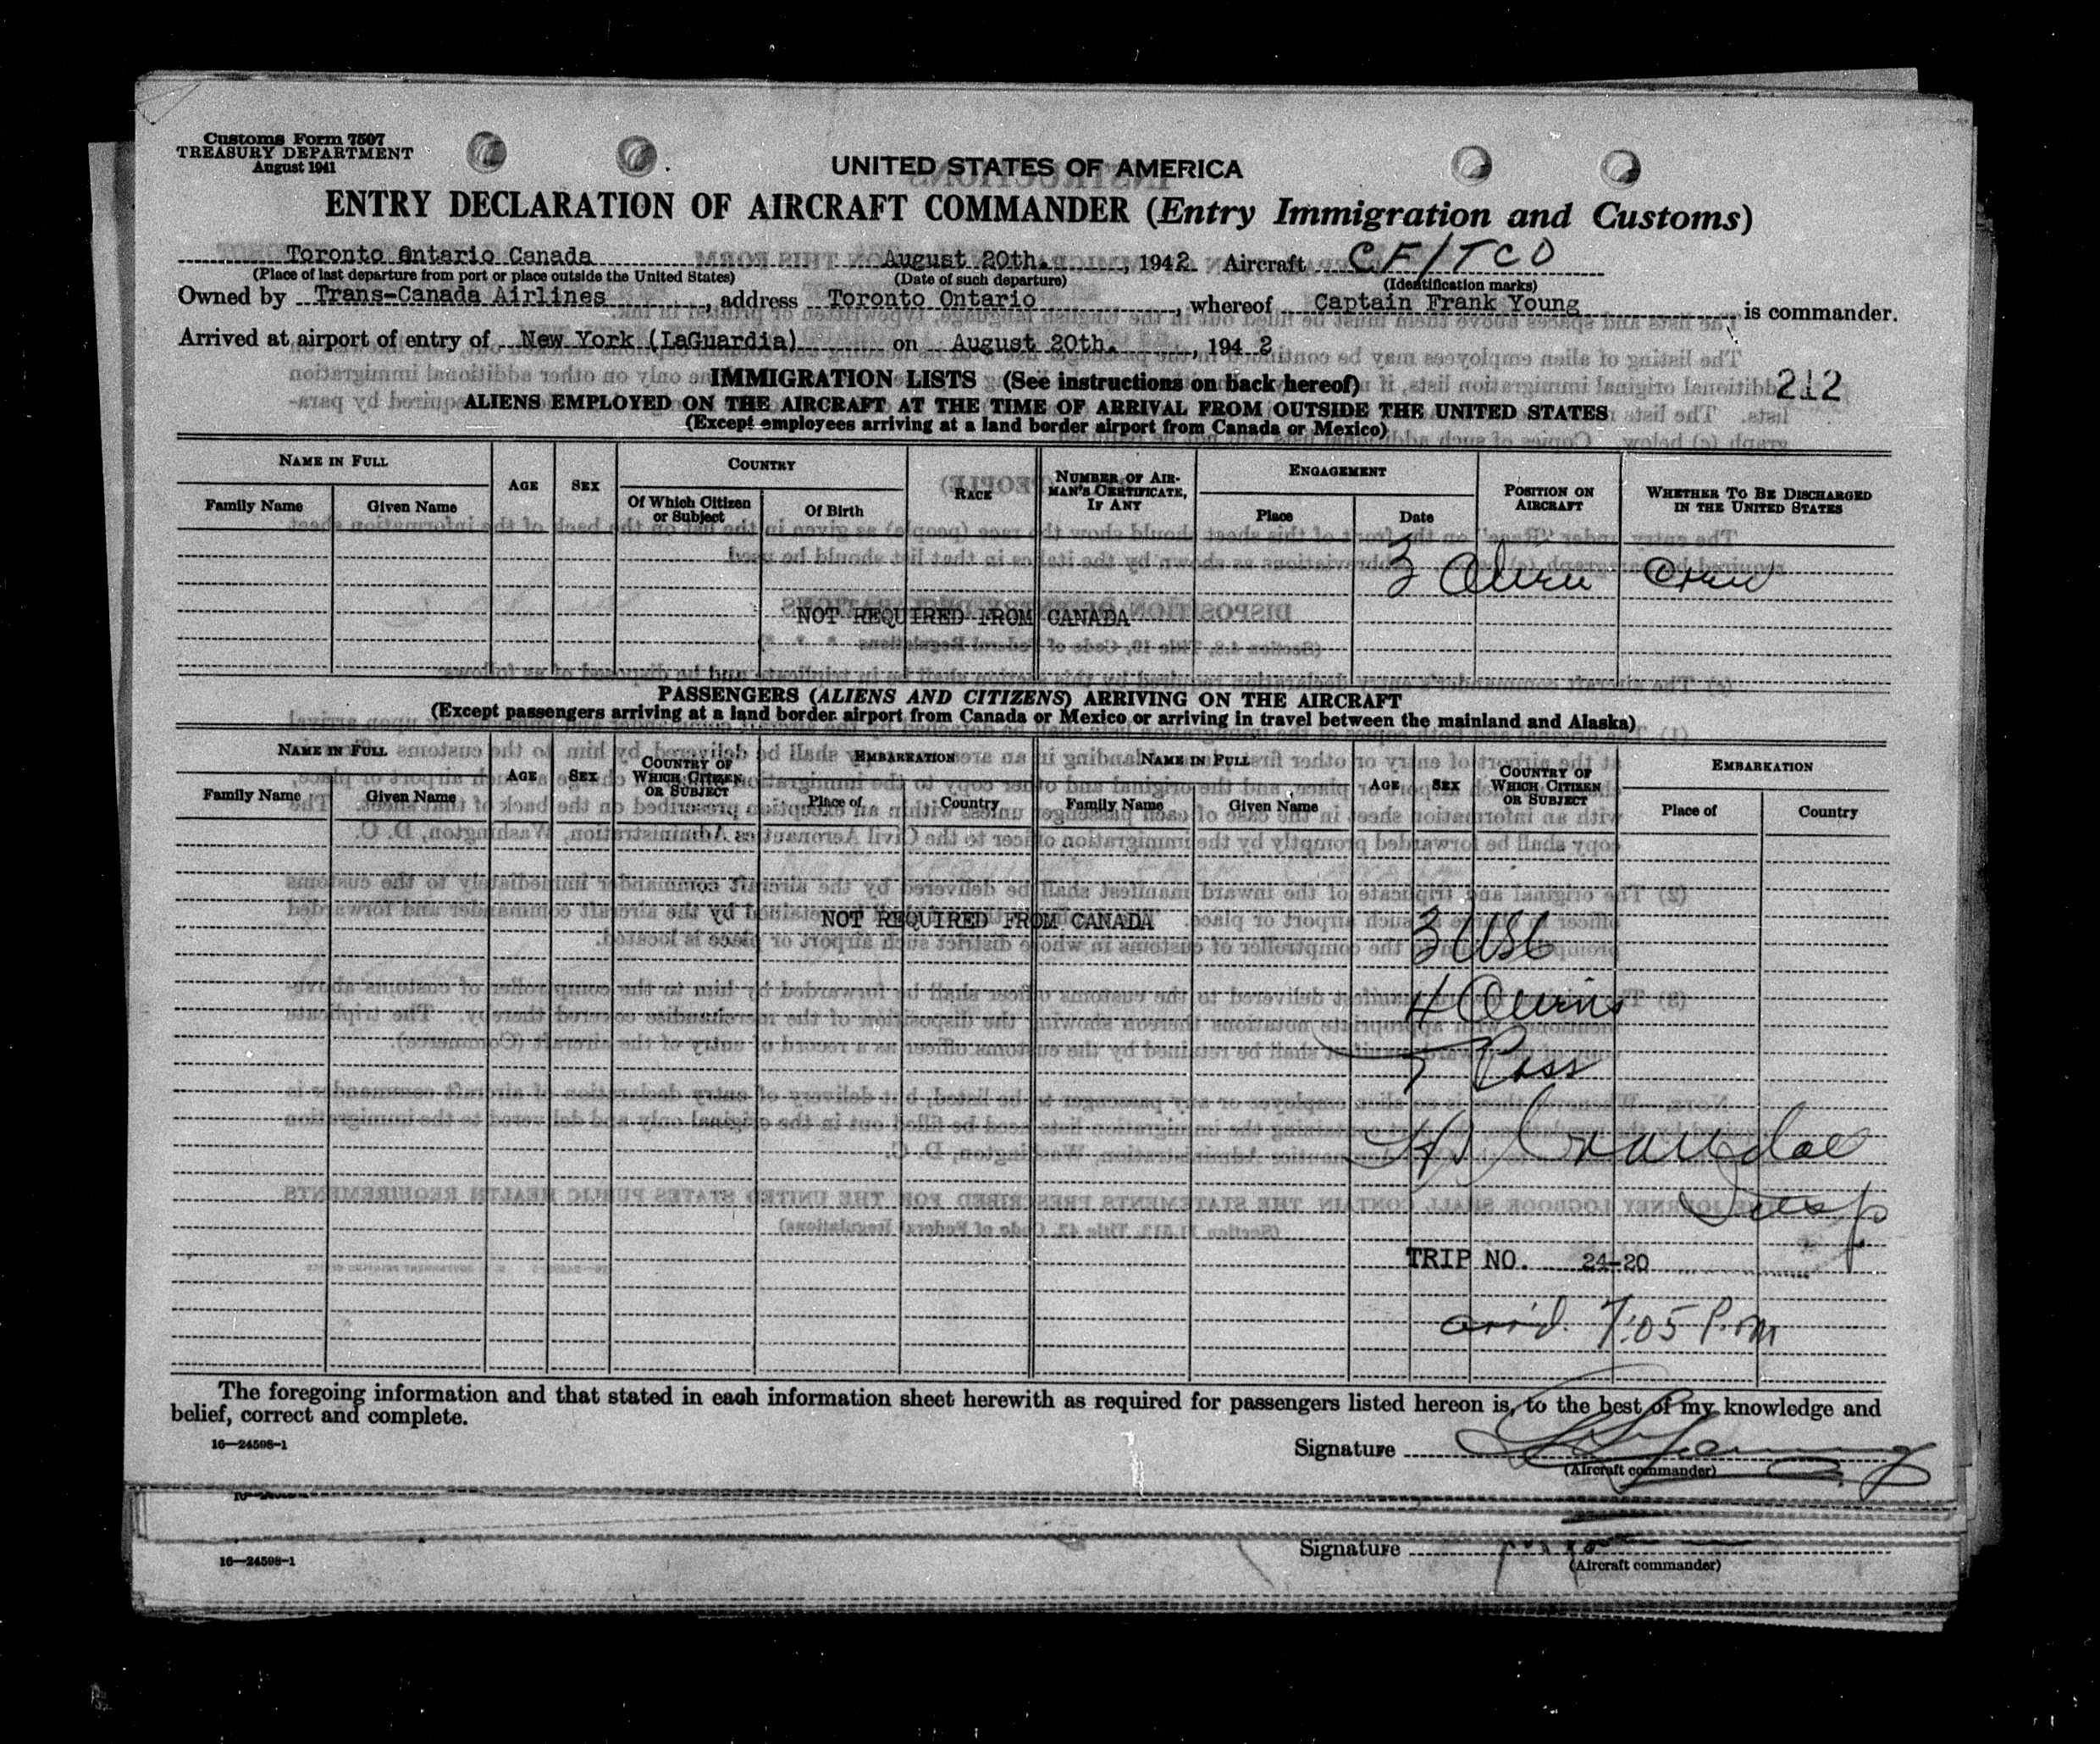 Customs Form 7507
TREASURY DEPARTMENT
August 1941
UNITED STATES OF AMERICA
ENTRY DECLARATION OF AIRCRAFT COMMANDER (Entry Immigration and Customs)
Toronto Ontario Canada August 20th. , 1942 Aircraft CF/TCO
(Place of last departure from port or place outside the United States) (Date of such departure) (Identification marks)
Owned by Trans-Canada Airlines , address Toronto Ontario , whereof Captain Frank Young is commander.
Arrived at airport of entry of New York (LaGuardia) on August 20th. , 1942
IMMIGRATION LISTS (See instructions on back hereof) 212
ALIENS EMPLOYED ON THE AIRCRAFT AT THE TIME OF ARRIVAL FROM OUTSIDE THE UNITED STATES
(Except employees arriving at a land border airport from Canada or Mexico)
NAME IN FULL AGE SEX COUNTRY RACE NUMBER OF AIRMAN'S CERTIFICATE, IF ANY ENGAGEMENT POSITION ON AIRCRAFT WHETHER TO BE DISCHARGED IN THE UNITED STATES
Family Name Given Name Of Which Citizen or Subject Of Birth Place Date
3 Alien Crew
NOT REQUIRED FROM CANADA
PASSENGERS (ALIENS AND CITIZENS) ARRIVING ON THE AIRCRAFT
(Except passengers arriving at a land border airport from Canada or Mexico or arriving in travel between the mainland and Alaska)
NAME IN FULL AGE SEX COUNTRY OF WHICH CITIZEN OR SUBJECT EMBARKATION NAME IN FULL AGE SEX COUNTRY OF WHICH CITIZEN OR SUBJECT EMBARKATION
Family Name Given Name Place of Country Family Name Given Name Place of Country
NOT REQUIRED FROM CANADA
3 USC
4 Aliens
7 Pass
Insp
TRIP NO. 24-20
arr'd. 7:05 P.M
The foregoing information and that stated in each information sheet herewith as required for passengers listed hereon is, to the best of my knowledge and
belief, correct and complete.
16—24598-1
Signature
(Aircraft commander)
Signature
16—24598-1
(Aircraft commander)